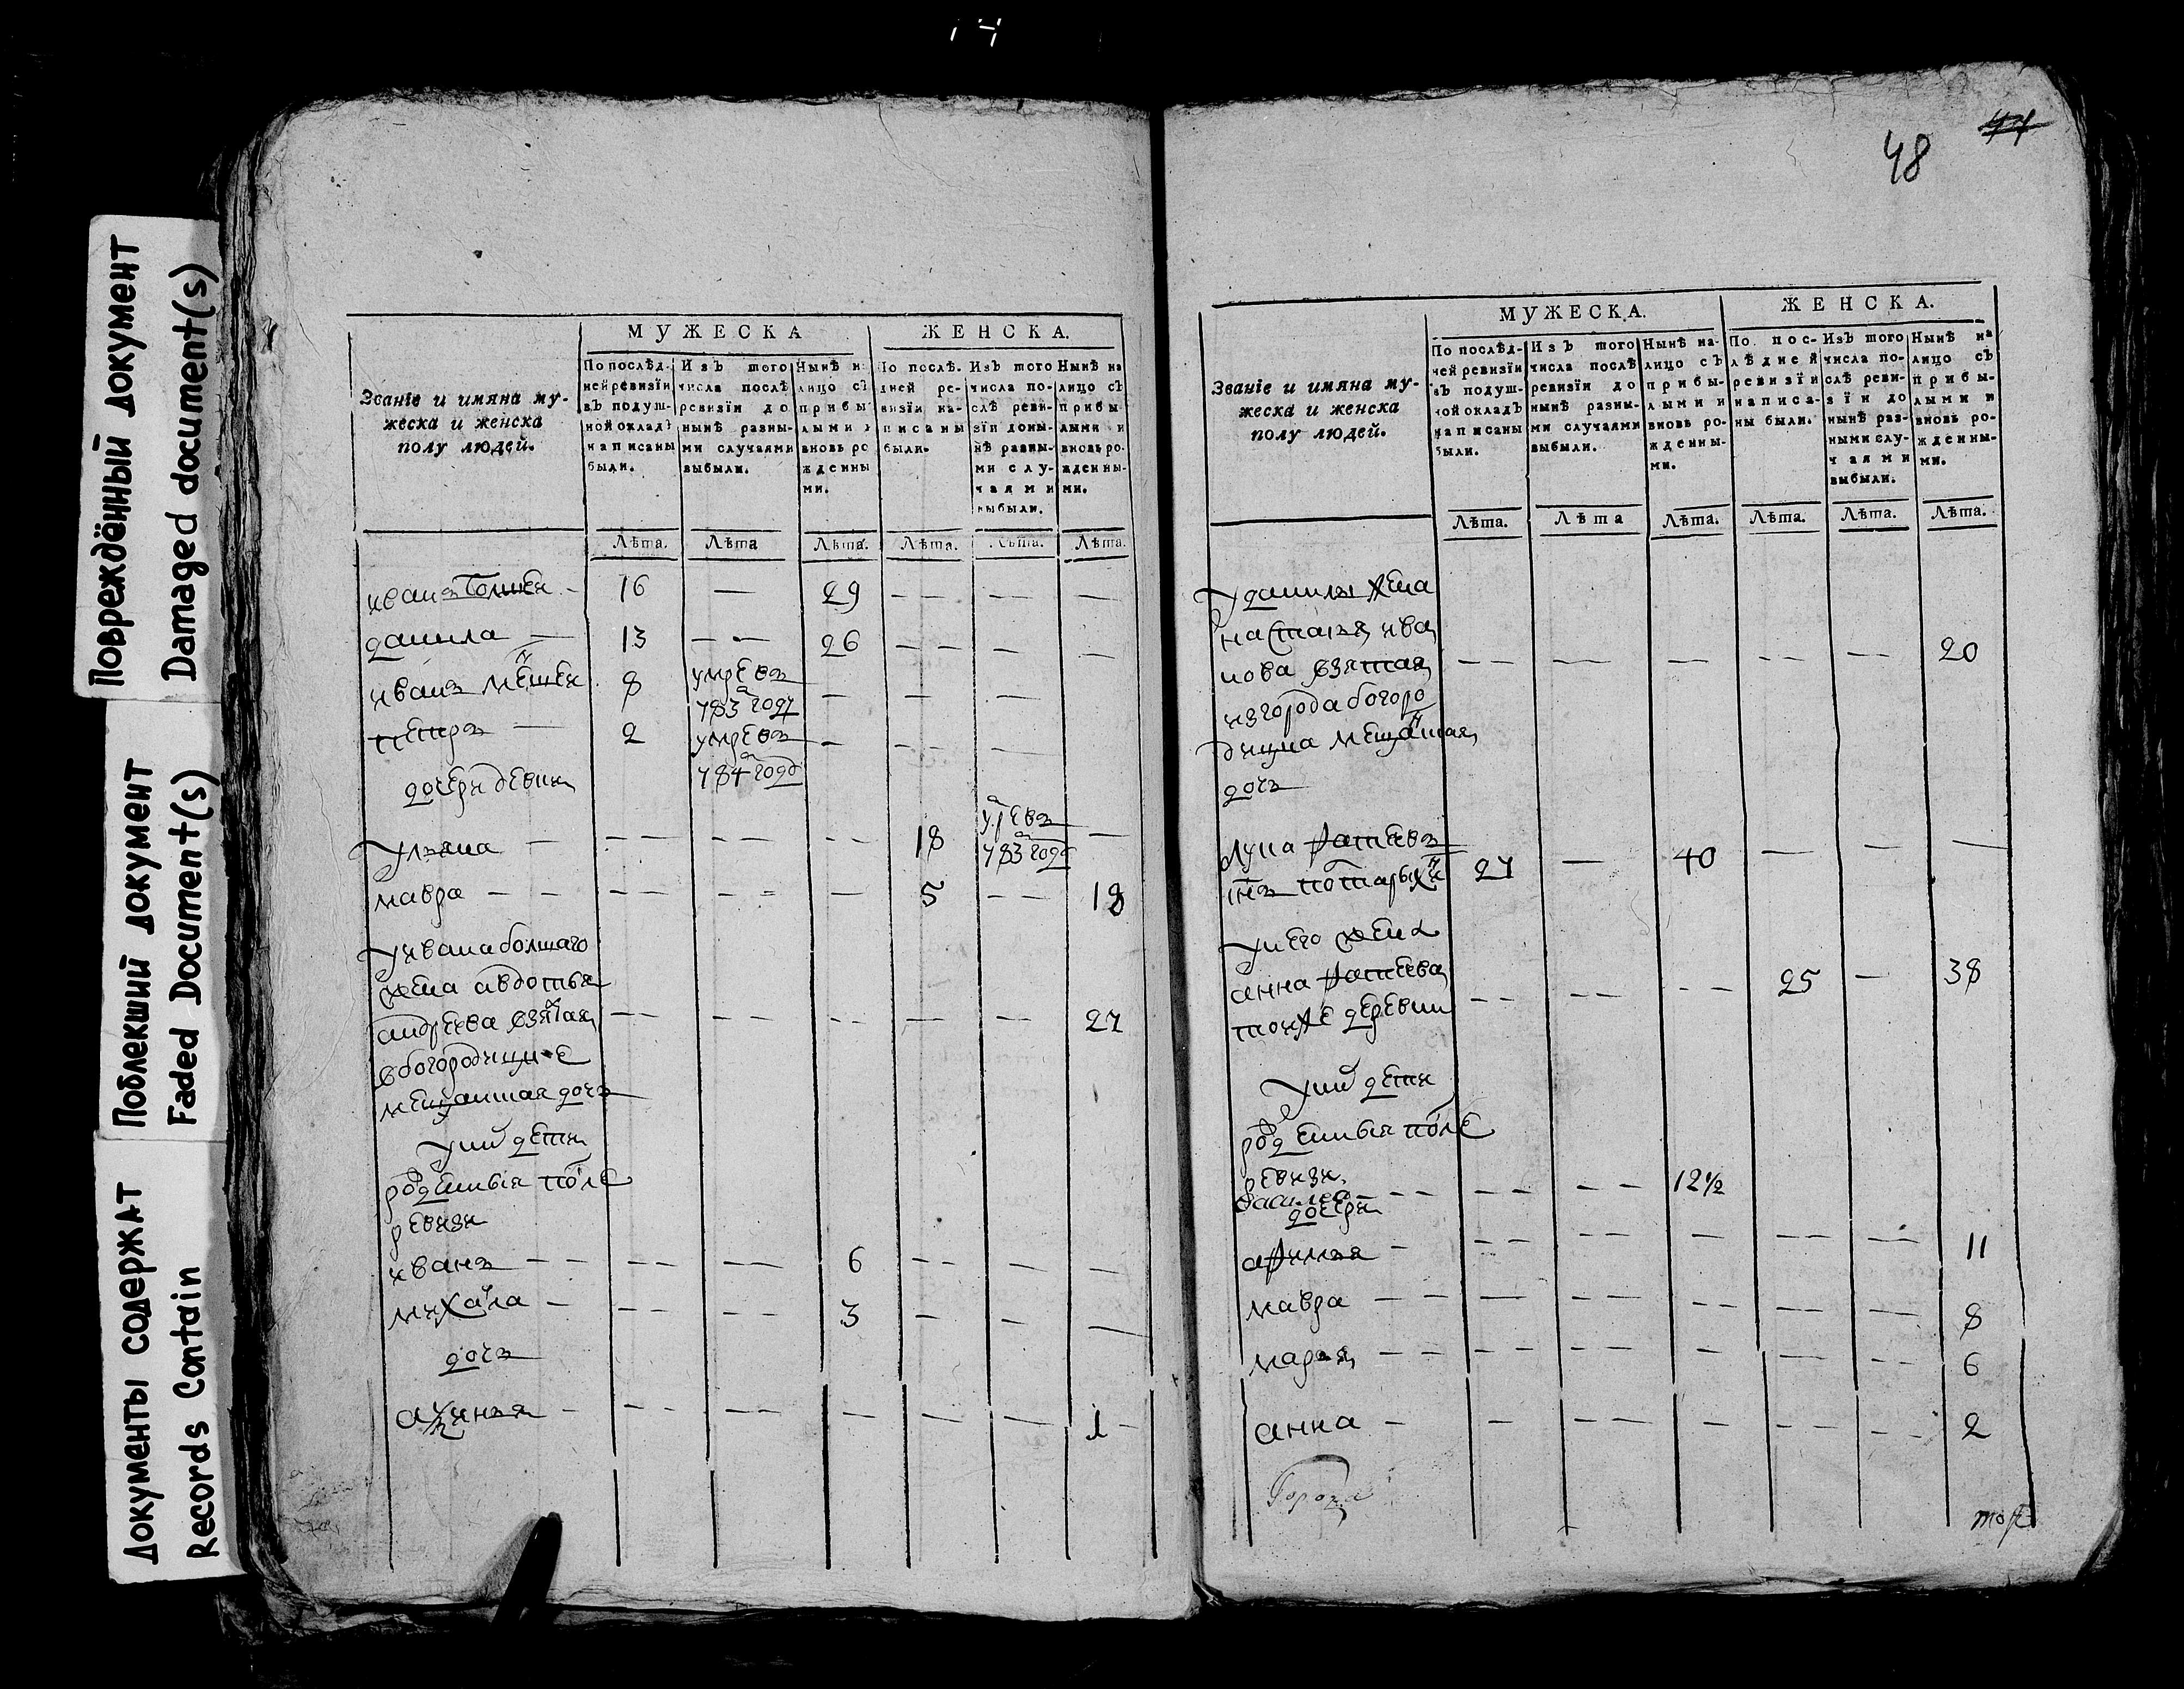 14
Повреждённый документ
Damaged document(s)
Поблекший документ
Faded Document(s)
Документы содержат
Records Contain
МУЖЕСКА
ЖЕНСКА.
Званіе и имяна му-
жеска и женска
полу людей.
По послѣд-
ней ревизіи
въ подуш-
ной окладъ
написаны
были.
Изъ того
числа послѣ
ревизіи до
нынѣ разны-
ми случаями
выбыли.
Нынѣ на
лицо съ
прибы
лыми и
вновь ро
жденны
ми.
По послѣ.
дней ре-
визіи на-
писаны
были.
Изъ того
числа по-
слѣ реви-
зіи доны-
нѣ разны-
ми слу-
чаями
выбыли.
Нынѣ на
лицо съ
прибы
лыми и
вновь ро-
жденны-
ми.
Лѣта. Лѣта Лѣта. Лѣта. Лѣта. Лѣта.
иванъ болшей 16 — 29 — — —
данила — 13 — — 26 — — — —
иванъ меншей 8 умре въ — — —
783 году
петръ — 2 умре въ — — — —
784 году
дочери девки
ульяна — — — — — — — 18 умре въ —
783 году
мавра — — — — — — — 5 — — 18
у ивана болшаго
жена авдотья
андреева взятая — — — — — — — — — 27
в богородицке
мещанская дочь
у них дети
рожденныя после
ревизи
иванъ — — — — — — 6 — — — —
михаила — — — — — 3 — — —
дочь
аксинья — — — — — — — — 1 —
44
48
МУЖЕСКА.
ЖЕНСКА.
Званіе и имяна му-
жеска и женска
полу людей.
По послѣд-
ней ревизіи
въ подуш-
ной окладъ
написаны
были.
Изъ того
числа послѣ
ревизіи до
нынѣ разны-
ми случаями
выбыли.
Нынѣ на-
лицо съ
прибы-
лыми и
вновь ро-
жденны-
ми.
По пос-
лѣдней
ревизіи
написа-
ны были.
Изъ того
числа по-
слѣ реви-
зіи до
нынѣ раз-
ными слу-
чаями
выбыли.
Нынѣ на
лицо съ
прибы-
лыми и
вновь ро-
жденны-
ми.
Лѣта. Лѣта Лѣта. Лѣта. Лѣта. Лѣта.
у данилы жена
настасья ива
нова взятая — — — — — — — — 20
из города богоро
дицка мещанская
дочь
лука фатеевъ
27 — 40 — — —
у него жена
анна фатеева 25 — 38
тои же деревни — — — — — —
у них дети
рожденныя после
ревизи
василеи — — — — — — — 12½
дочери
афимья — — — — — — — — — 11
мавра — — — — — — — — — — 8
марья — — — — — — — — — — 6
анна — — — — — — — — — 2
Города
тоже